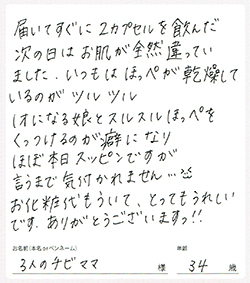 届いてすぐに2カプセルを飲んだ
次の日はお肌が全然違ってい
ました。いつもはほっぺが乾燥して
いるのがツルツル
1才になる娘とスルスルほっぺを
くっつけるのが癖になり
ほぼ本日スッピンですが
言うまで気付かれません…
お化粧代もういて、とってもうれしい
です。ありがとうございますっ!!
お名前(本名orペンネーム) 年齢
3人のチビママ 様 34 歳